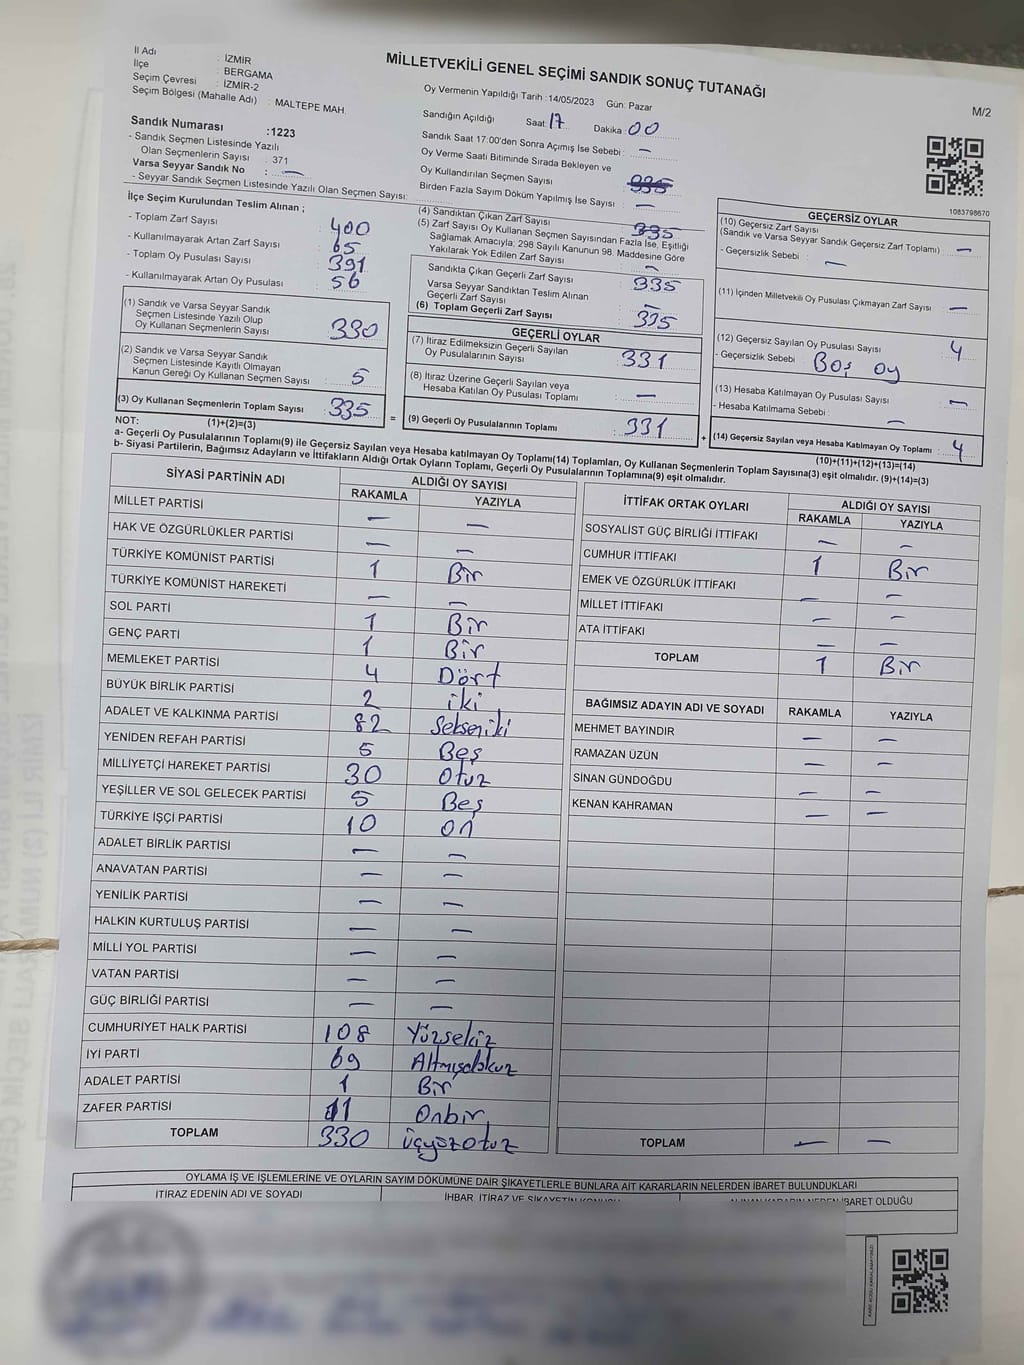 MİLLETVEKİLİ GENEL SEÇİMİ SANDIK SONUÇ TUTANAĞI
M/2
İl Adı : İZMİR
İlçe : BERGAMA
Seçim Çevresi : İZMİR-2
Seçim Bölgesi (Mahalle Adı) : MALTEPE MAH.
Sandık Numarası :1223
- Sandık Seçmen Listesinde Yazılı
Olan Seçmenlerin Sayısı : 371
Varsa Seyyar Sandık No : —
- Seyyar Sandık Seçmen Listesinde Yazılı Olan Seçmen Sayısı:
Oy Vermenin Yapıldığı Tarih :14/05/2023 Gün: Pazar
Sandığın Açıldığı Saat: 17 Dakika : 00
Sandık Saat 17:00'den Sonra Açımış İse Sebebi : —
Oy Verme Saati Bitiminde Sırada Bekleyen ve
Oy Kullandırılan Seçmen Sayısı : 335
Birden Fazla Sayım Döküm Yapılmış İse Sayısı : —
1083798670
İlçe Seçim Kurulundan Teslim Alınan ;
- Toplam Zarf Sayısı : 400
- Kullanılmayarak Artan Zarf Sayısı : 65
- Toplam Oy Pusulası Sayısı : 391
- Kullanılmayarak Artan Oy Pusulası : 56
(1) Sandık ve Varsa Seyyar Sandık
Seçmen Listesinde Yazılı Olup
Oy Kullanan Seçmenlerin Sayısı : 330
(2) Sandık ve Varsa Seyyar Sandık
Seçmen Listesinde Kayıtlı Olmayan
Kanun Gereği Oy Kullanan Seçmen Sayısı : 5
(3) Oy Kullanan Seçmenlerin Toplam Sayısı : 335
(1)+(2)=(3)
(4) Sandıktan Çıkan Zarf Sayısı : 335
(5) Zarf Sayısı Oy Kullanan Seçmen Sayısından Fazla İse, Eşitliği
Sağlamak Amacıyla; 298 Sayılı Kanunun 98. Maddesine Göre
Yakılarak Yok Edilen Zarf Sayısı : —
Sandıkta Çıkan Geçerli Zarf Sayısı : 335
Varsa Seyyar Sandıktan Teslim Alınan
Geçerli Zarf Sayısı : —
(6) Toplam Geçerli Zarf Sayısı : 335
GEÇERLİ OYLAR
(7) İtiraz Edilmeksizin Geçerli Sayılan
Oy Pusulalarının Sayısı : 331
(8) İtiraz Üzerine Geçerli Sayılan veya
Hesaba Katılan Oy Pusulası Toplamı : —
= (9) Geçerli Oy Pusulalarının Toplamı : 331
GEÇERSİZ OYLAR
(10) Geçersiz Zarf Sayısı
(Sandık ve Varsa Seyyar Sandık Geçersiz Zarf Toplamı) : —
- Geçersizlik Sebebi : —
(11) İçinden Milletvekili Oy Pusulası Çıkmayan Zarf Sayısı : —
(12) Geçersiz Sayılan Oy Pusulası Sayısı : 4
- Geçersizlik Sebebi : Boş oy
(13) Hesaba Katılmayan Oy Pusulası Sayısı : —
- Hesaba Katılmama Sebebi : —
+ (14) Geçersiz Sayılan veya Hesaba Katılmayan Oy Toplamı : 4
(10)+(11)+(12)+(13)=(14)
NOT:
a- Geçerli Oy Pusulalarının Toplamı(9) ile Geçersiz Sayılan veya Hesaba katılmayan Oy Toplamı(14) Toplamları, Oy Kullanan Seçmenlerin Toplam Sayısına(3) eşit olmalıdır. (9)+(14)=(3)
b- Siyasi Partilerin, Bağımsız Adayların ve İttifakların Aldığı Ortak Oyların Toplamı, Geçerli Oy Pusulalarının Toplamına(9) eşit olmalıdır.
SİYASİ PARTİNİN ADI ALDIĞI OY SAYISI
RAKAMLA YAZIYLA
MİLLET PARTİSİ — —
HAK VE ÖZGÜRLÜKLER PARTİSİ — —
TÜRKİYE KOMÜNİST PARTİSİ 1 Bir
TÜRKİYE KOMÜNİST HAREKETİ — —
SOL PARTİ 1 Bir
GENÇ PARTİ 1 Bir
MEMLEKET PARTİSİ 4 Dört
BÜYÜK BİRLİK PARTİSİ 2 iki
ADALET VE KALKINMA PARTİSİ 82 Sekseniki
YENİDEN REFAH PARTİSİ 5 Beş
MİLLİYETÇİ HAREKET PARTİSİ 30 Otuz
YEŞİLLER VE SOL GELECEK PARTİSİ 5 Beş
TÜRKİYE İŞÇİ PARTİSİ 10 On
ADALET BİRLİK PARTİSİ — —
ANAVATAN PARTİSİ — —
YENİLİK PARTİSİ — —
HALKIN KURTULUŞ PARTİSİ — —
MİLLİ YOL PARTİSİ — —
VATAN PARTİSİ — —
GÜÇ BİRLİĞİ PARTİSİ — —
CUMHURİYET HALK PARTİSİ 108 Yüzsekiz
İYİ PARTİ 69 Altmışdokuz
ADALET PARTİSİ 1 Bir
ZAFER PARTİSİ 11 Onbir
TOPLAM 330 üçyüzotuz
İTTİFAK ORTAK OYLARI ALDIĞI OY SAYISI
RAKAMLA YAZIYLA
SOSYALİST GÜÇ BİRLİĞİ İTTİFAKI — —
CUMHUR İTTİFAKI 1 Bir
EMEK VE ÖZGÜRLÜK İTTİFAKI — —
MİLLET İTTİFAKI — —
ATA İTTİFAKI — —
TOPLAM 1 Bir
BAĞIMSIZ ADAYIN ADI VE SOYADI RAKAMLA YAZIYLA
MEHMET BAYINDIR — —
RAMAZAN ÜZÜN — —
SİNAN GÜNDOĞDU — —
KENAN KAHRAMAN — —
TOPLAM — —
OYLAMA İŞ VE İŞLEMLERİNE VE OYLARIN SAYIM DÖKÜMÜNE DAİR ŞİKAYETLERLE BUNLARA AİT KARARLARIN NELERDEN İBARET BULUNDUKLARI
İTİRAZ EDENİN ADI VE SOYADI İHBAR, İTİRAZ VE ŞİKAYETİN KONUSU ALINAN KARARIN NEDEN İBARET OLDUĞU